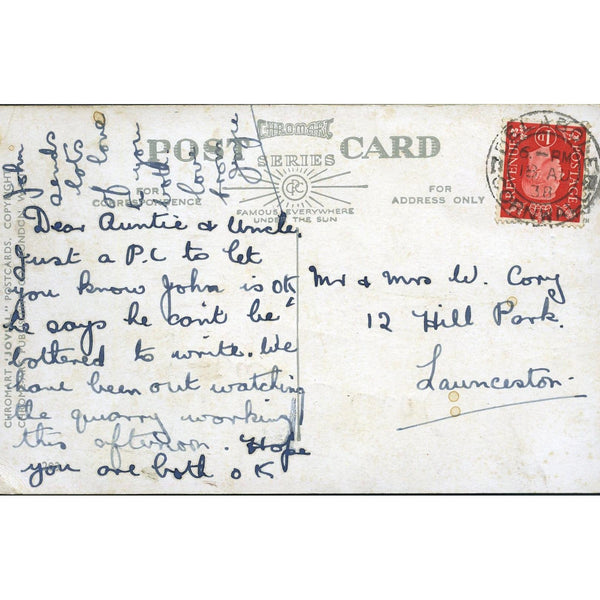 POST CARD
CHROMART
SERIES
CPC
FAMOUS EVERYWHERE
UNDER THE SUN
FOR
CORRESPONDENCE
FOR
ADDRESS ONLY
CHROMART "JOVIAL" POSTCARDS. COPYRIGHT
LONDON
REVENUE
POSTAGE
1D
6-PM
38
CORNWALL
Dear Auntie & Uncle,
Just a P.C to let
you know John is OK
he says he can't be
bothered to write. We
have been out watching
the quarry working
this afternoon. Hope
you are both OK
John
sends
lots
of love
to you
both
love
from
Mr & Mrs W. Cory
12 Hill Park.
Launceston